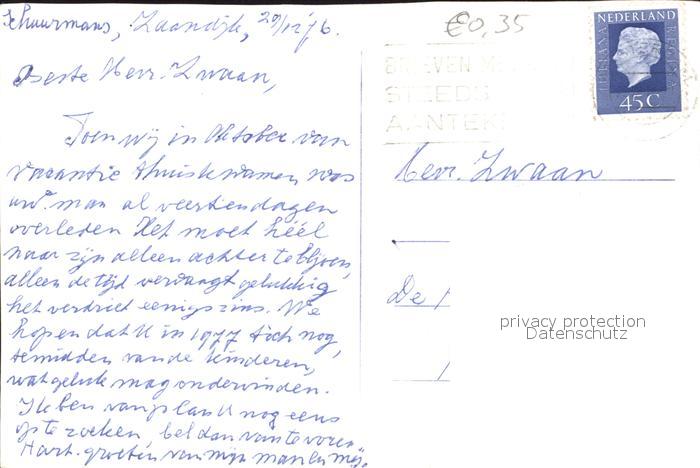 Schuurmans, Zaandijk, 29/12'76.
€0,35
NEDERLAND
JULIANA REGINA
45 C
BRIEVEN M
STEEDS
AANTEK
Beste Mevr. Zwaan,
Toen wij in Oktober van
vacantie thuiskwamen, was
uw man al veertien dagen
overleden. Het moet héél
naar zijn alleen achter te blijven,
alleen de tijd vervaagt gelukkig
het verdriet eenigszins. We
hopen dat U in 1977 toch nog,
temidden van de kinderen,
wat geluk mag ondervinden.
Ik ben van plan U nog eens
op te zoeken, bel dan van te voren.
Hart. groeten van mijn man en mij.
Mevr. Zwaan
De
privacy protection
Datenschutz